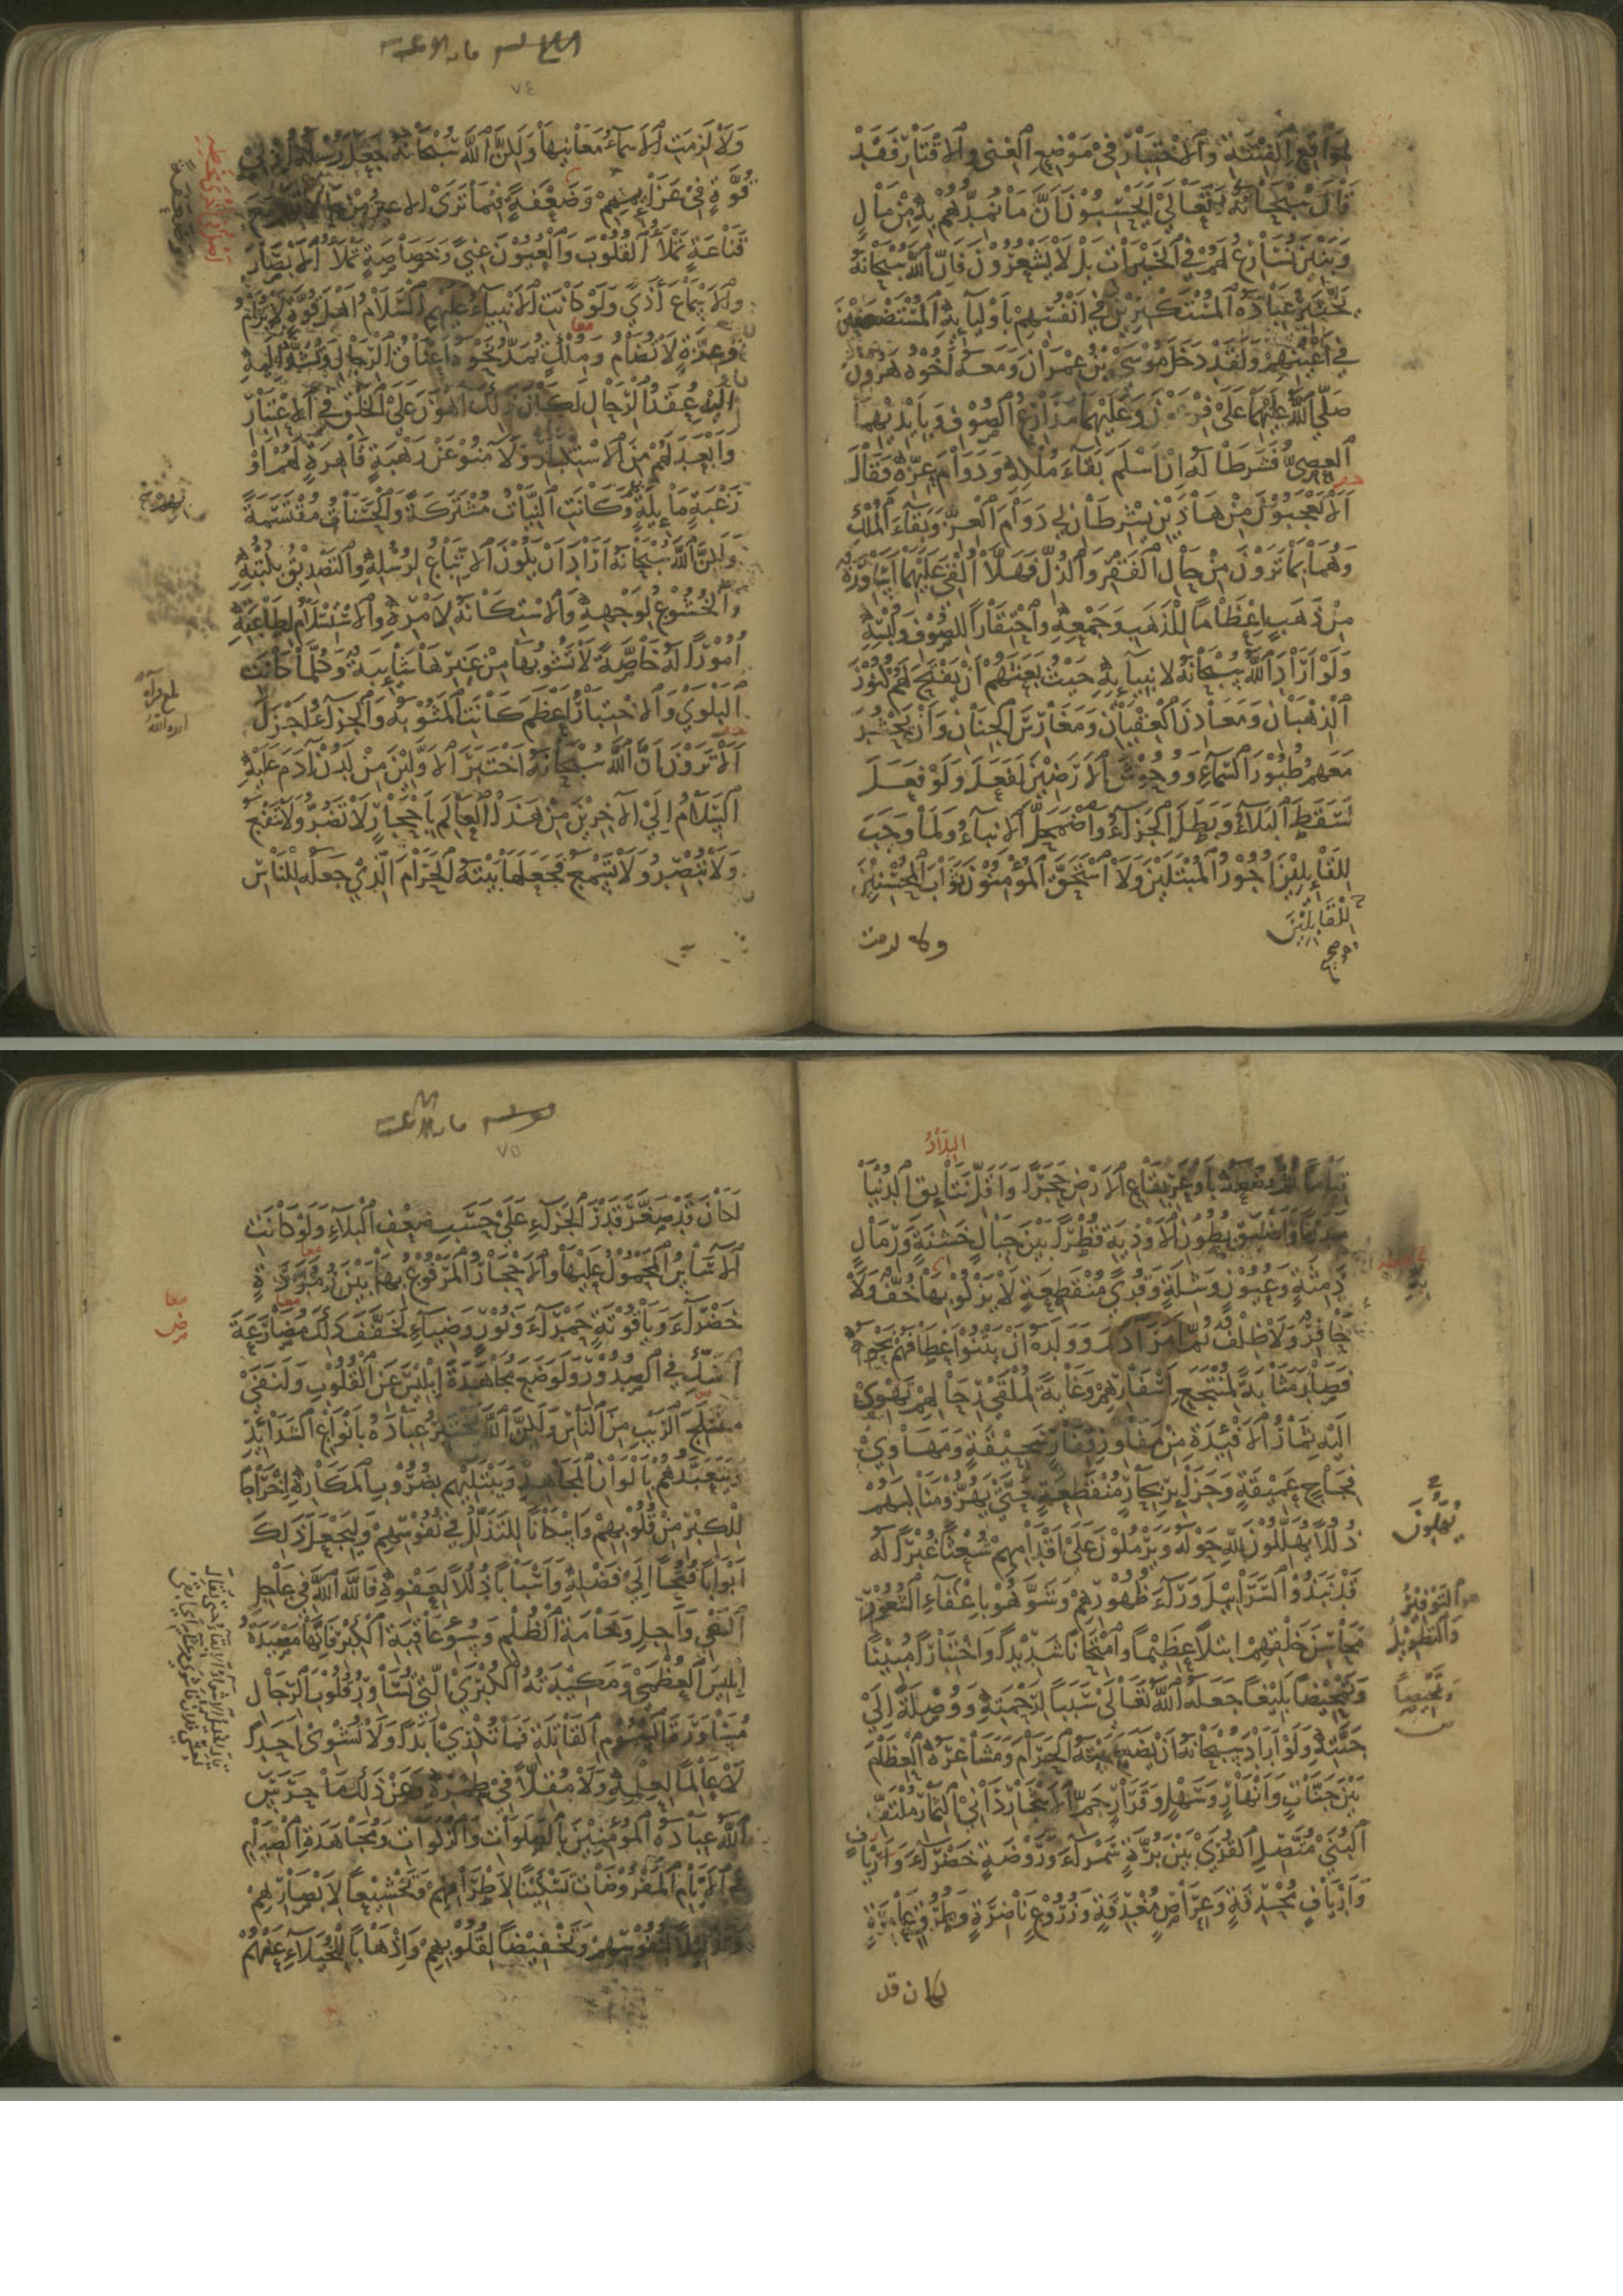 لِمَوَاقِعِ الْفِتْنَةِ وَالِاخْتِبَارِ فِي مَوْضِعِ الْغِنَى وَالْإِقْتَارِ فَقَدْ
قَالَ سُبْحَانَهُ وَتَعَالَى أَيَحْسَبُونَ أَنَّ مَا نُمِدُّهُمْ بِهِ مِنْ مَالٍ
وَبَنِينَ نُسَارِعُ لَهُمْ فِي الْخَيْرَاتِ بَلْ لَا يَشْعُرُونَ فَإِنَّ اللَّهَ سُبْحَانَهُ
يَخْتَبِرُ عِبَادَهُ الْمُسْتَكْبِرِينَ فِي أَنْفُسِهِمْ بِأَوْلِيَائِهِ الْمُسْتَضْعَفِينَ
فِي أَعْيُنِهِمْ وَلَقَدْ دَخَلَ مُوسَى بْنُ عِمْرَانَ وَمَعَهُ أَخُوهُ هَرُونُ
صَلَّى اللَّهُ عَلَيْهِمَا عَلَى فِرْعَوْنَ وَعَلَيْهِمَا مَدَارِعُ الصُّوفِ وَبِأَيْدِيهِمَا
الْعِصِيُّ فَشَرَطَا لَهُ إِنْ أَسْلَمَ بَقَاءَ مُلْكِهِ وَدَوَامَ عِزِّهِ فَقَالَ
أَلَا تَعْجَبُونَ مِنْ هَذَيْنِ يَشْرِطَانِ لِي دَوَامَ الْعِزِّ وَبَقَاءَ الْمُلْكِ
وَهُمَا بِمَا تَرَوْنَ مِنْ حَالِ الْفَقْرِ وَالذُّلِّ فَهَلَّا أُلْقِيَ عَلَيْهِمَا أَسَاوِرَةٌ
مِنْ ذَهَبٍ إِعْظَامًا لِلذَّهَبِ وَجَمْعِهِ وَاحْتِقَارًا لِلصُّوفِ وَلُبْسِهِ
وَلَوْ أَرَادَ اللَّهُ سُبْحَانَهُ لِأَنْبِيَائِهِ حَيْثُ بَعَثَهُمْ أَنْ يَفْتَحَ لَهُمْ كُنُوزَ
الذِّهْبَانِ وَمَعَادِنَ الْعِقْيَانِ وَمَغَارِسَ الْجِنَانِ وَأَنْ يَحْشُرَ
مَعَهُمْ طُيُورَ السَّمَاءِ وَوُحُوشَ الْأَرَضِينَ لَفَعَلَ وَلَوْ فَعَلَ
لَسَقَطَ الْبَلَاءُ وَبَطَلَ الْجَزَاءُ وَاضْمَحَلَّ الْأَنْبَاءُ وَلَمَا وَجَبَ
لِلْقَائِلِينَ أُجُورُ الْمُبْتَلَيْنَ وَلَا اسْتَحَقَّ الْمُؤْمِنُونَ ثَوَابَ الْمُحْسِنِينَ
لِلْقَابِلِينَ
ولا لزمت
٧٤
وَلَا لَزِمَتِ الْأَسْمَاءُ مَعَانِيَهَا وَلَكِنَّ اللَّهَ سُبْحَانَهُ جَعَلَ رُسُلَهُ أُولِي
قُوَّةٍ فِي عَزَائِمِهِمْ وَضَعْفَةٍ فِيمَا تَرَى الْأَعْيُنُ مِنْ حَالَاتِهِمْ مَعَ
قَنَاعَةٍ تَمْلَأُ الْقُلُوبَ وَالْعُيُونَ غِنًى وَخَصَاصَةٍ تَمْلَأُ الْأَبْصَارَ
وَالْأَسْمَاعَ أَذًى وَلَوْ كَانَتِ الْأَنْبِيَاءُ عَلَيْهِمُ السَّلَامُ أَهْلَ قُوَّةٍ لَا تُرَامُ
وَعِزَّةٍ لَا تُضَامُ وَمُلْكٍ تُمَدُّ نَحْوَهُ أَعْنَاقُ الرِّجَالِ وَتُشَدُّ
إِلَيْهِ عُقَدُ الرِّحَالِ لَكَانَ ذَلِكَ أَهْوَنَ عَلَى الْخَلْقِ فِي الِاعْتِبَارِ
وَأَبْعَدَ لَهُمْ مِنَ الِاسْتِكْبَارِ وَلَآمَنُوا عَنْ رَهْبَةٍ قَاهِرَةٍ لَهُمْ أَوْ
رَغْبَةٍ مَائِلَةٍ وَكَانَتِ النِّيَّاتُ مُشْتَرَكَةً وَالْحَسَنَاتُ مُقْتَسَمَةً
وَلَكِنَّ اللَّهَ سُبْحَانَهُ أَرَادَ أَنْ يَكُونَ الِاتِّبَاعُ لِرُسُلِهِ وَالتَّصْدِيقُ بِكُتُبِهِ
وَالْخُشُوعُ لِوَجْهِهِ وَالِاسْتِكَانَةُ لِأَمْرِهِ وَالِاسْتِسْلَامُ لِطَاعَتِهِ
أُمُورًا لَهُ خَاصَّةً لَا تَشُوبُهَا مِنْ غَيْرِهَا شَائِبَةٌ وَكُلَّمَا كَانَتِ
الْبَلْوَى وَالِاخْتِبَارُ أَعْظَمَ كَانَتِ الْمَثُوبَةُ وَالْجَزَاءُ أَجْزَلَ
أَلَا تَرَوْنَ أَنَّ اللَّهَ سُبْحَانَهُ اخْتَبَرَ الْأَوَّلِينَ مِنْ لَدُنْ آدَمَ عَلَيْهِ
السَّلَامُ إِلَى الْآخِرِينَ مِنْ هَذَا الْعَالَمِ بِأَحْجَارٍ لَا تَضُرُّ وَلَا تَنْفَعُ
وَلَا تُبْصِرُ وَلَا تَسْمَعُ فَجَعَلَهَا بَيْتَهُ الْحَرَامَ الَّذِي جَعَلَهُ لِلنَّاسِ
قِيَامًا ثُمَّ وَضَعَهُ بِأَوْعَرِ بِقَاعِ الْأَرْضِ حَجَرًا وَأَقَلِّ نَتَائِقِ الدُّنْيَا
مَدَرًا وَأَضْيَقِ بُطُونِ الْأَوْدِيَةِ قُطْرًا بَيْنَ جِبَالٍ خَشِنَةٍ وَرِمَالٍ
دَمِثَةٍ وَعُيُونٍ وَشِلَةٍ وَقُرًى مُنْقَطِعَةٍ لَا يَزْكُو بِهَا خُفٌّ وَلَا
حَافِرٌ وَلَا ظِلْفٌ ثُمَّ أَمَرَ آدَمَ وَوَلَدَهُ أَنْ يَثْنُوا أَعْطَافَهُمْ نَحْوَهُ
فَصَارَ مَثَابَةً لِمُنْتَجَعِ أَسْفَارِهِمْ وَغَايَةً لِمُلْقَى رِحَالِهِمْ تَهْوِي
إِلَيْهِ ثِمَارُ الْأَفْئِدَةِ مِنْ مَفَاوِزِ قِفَارٍ سَحِيقَةٍ وَمَهَاوِي
فِجَاجٍ عَمِيقَةٍ وَجَزَائِرِ بِحَارٍ مُنْقَطِعَةٍ حَتَّى يَهُزُّوا مَنَاكِبَهُمْ
ذُلُلًا يُهَلِّلُونَ لِلَّهِ حَوْلَهُ وَيَرْمُلُونَ عَلَى أَقْدَامِهِمْ شُعْثًا غُبْرًا لَهُ
قَدْ نَبَذُوا السَّرَابِيلَ وَرَاءَ ظُهُورِهِمْ وَشَوَّهُوا بِإِعْفَاءِ الشُّعُورِ
مَحَاسِنَ خَلْقِهِمُ ابْتِلَاءً عَظِيمًا وَامْتِحَانًا شَدِيدًا وَاخْتِبَارًا مُبِينًا
وَتَمْحِيصًا بَلِيغًا جَعَلَهُ اللَّهُ تَعَالَى سَبَبًا لِرَحْمَتِهِ وَوُصْلَةً إِلَى
جَنَّتِهِ وَلَوْ أَرَادَ سُبْحَانَهُ أَنْ يَضَعَ بَيْتَهُ الْحَرَامَ وَمَشَاعِرَهُ الْعِظَامَ
بَيْنَ جَنَّاتٍ وَأَنْهَارٍ وَسَهْلٍ وَقَرَارٍ جَمِّ الْأَشْجَارِ دَانِي الثِّمَارِ مُلْتَفِّ
الْبُنَى مُتَّصِلِ الْقُرَى بَيْنَ بُرَّةٍ سَمْرَاءَ وَرَوْضَةٍ خَضْرَاءَ
وَأَرْيَافٍ مُحْدِقَةٍ وَعِرَاصٍ مُغْدِقَةٍ وَزُرُوعٍ نَاضِرَةٍ وَطُرُقٍ عَامِرَةٍ
لكان قد
يُهِلُّونَ
وَتَمْحِيصًا
٧٥
لَكَانَ قَدْ صَغُرَ قَدْرُ الْجَزَاءِ عَلَى حَسَبِ ضَعْفِ الْبَلَاءِ وَلَوْ كَانَتِ
الْآسَاسُ الْمَحْمُولُ عَلَيْهَا وَالْأَحْجَارُ الْمَرْفُوعُ بِهَا بَيْنَ زُمُرُّدَةٍ
خَضْرَاءَ وَيَاقُوتَةٍ حَمْرَاءَ وَنُورٍ وَضِيَاءٍ لَخَفَّفَ ذَلِكَ مُضَارَعَةَ
الشَّكِّ فِي الصُّدُورِ وَلَوَضَعَ مُجَاهَدَةَ إِبْلِيسَ عَنِ الْقُلُوبِ وَلَنَفَى
مُعْتَلَجَ الرَّيْبِ مِنَ النَّاسِ وَلَكِنَّ اللَّهَ يَخْتَبِرُ عِبَادَهُ بِأَنْوَاعِ الشَّدَائِدِ
وَيَتَعَبَّدُهُمْ بِأَلْوَانِ الْمَجَاهِدِ وَيَبْتَلِيهِمْ بِضُرُوبِ الْمَكَارِهِ إِخْرَاجًا
لِلْكِبْرِ مِنْ قُلُوبِهِمْ وَإِسْكَانًا لِلتَّذَلُّلِ فِي نُفُوسِهِمْ وَلِيَجْعَلَ ذَلِكَ
أَبْوَابًا فُتُحًا إِلَى فَضْلِهِ وَأَسْبَابًا ذُلُلًا لِعَفْوِهِ فَاللَّهَ اللَّهَ فِي عَاجِلِ
الْبَغْيِ وَآجِلِ وَخَامَةِ الظُّلْمِ وَسُوءِ عَاقِبَةِ الْكِبْرِ فَإِنَّهَا مَصْيَدَةُ
إِبْلِيسَ الْعُظْمَى وَمَكِيدَتُهُ الْكُبْرَى الَّتِي تُسَاوِرُ قُلُوبَ الرِّجَالِ
مُسَاوَرَةَ السُّمُومِ الْقَاتِلَةِ فَمَا تُكْدِي أَبَدًا وَلَا تُشْوِي أَحَدًا
لَا عَالِمًا لِعِلْمِهِ وَلَا مُقِلًّا فِي طِمْرِهِ وَعَنْ ذَلِكَ مَا حَرَسَ
اللَّهُ عِبَادَهُ الْمُؤْمِنِينَ بِالصَّلَوَاتِ وَالزَّكَوَاتِ وَمُجَاهَدَةِ الصِّيَامِ
فِي الْأَيَّامِ الْمَفْرُوضَاتِ تَسْكِينًا لِأَطْرَافِهِمْ وَتَخْشِيعًا لِأَبْصَارِهِمْ
وَتَذْلِيلًا لِنُفُوسِهِمْ وَتَخْفِيضًا لِقُلُوبِهِمْ وَإِذْهَابًا لِلْخُيَلَاءِ عَنْهُمْ